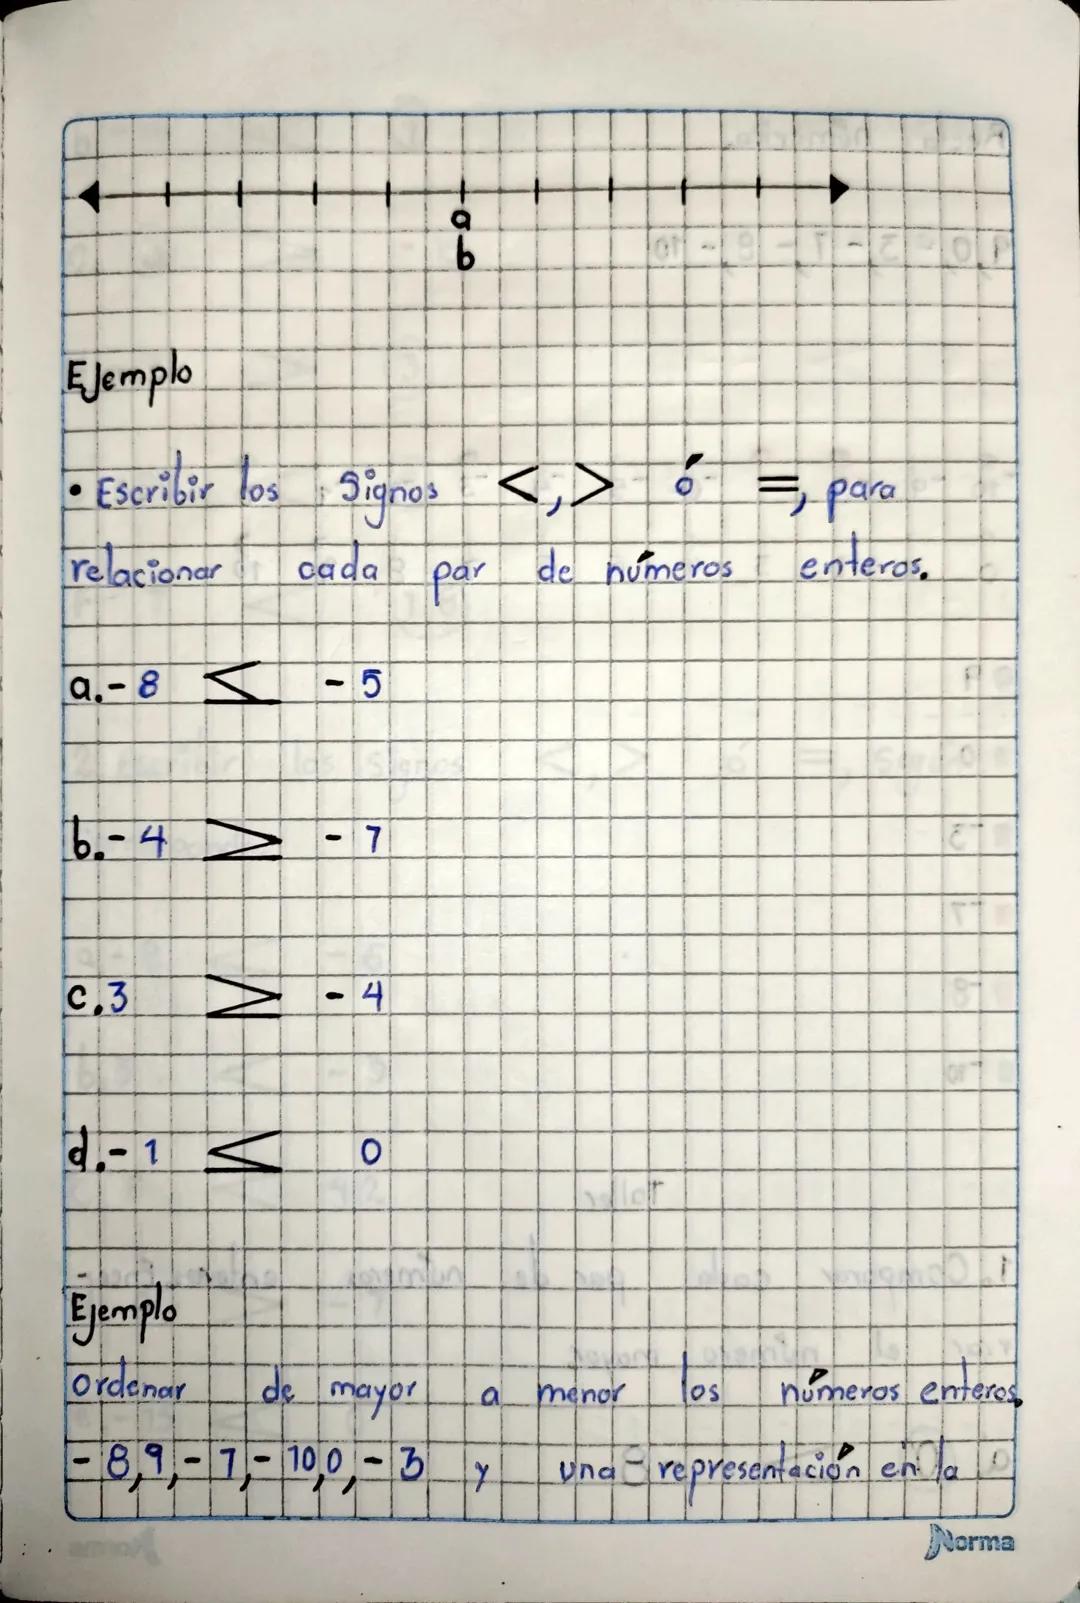 a
b
Ejemplo
• Escribir los Signos <,> ó =, para
relacionar cada par de números enteros.
a. - 8 < - 5
b. - 4 > - 7
c. 3 > - 4
d. - 1 < 0
Ejemplo
Ordenar de mayor a menor los números enteros,
- 8, 9, - 7, - 10, 0, - 3 y una representación en la
Norma